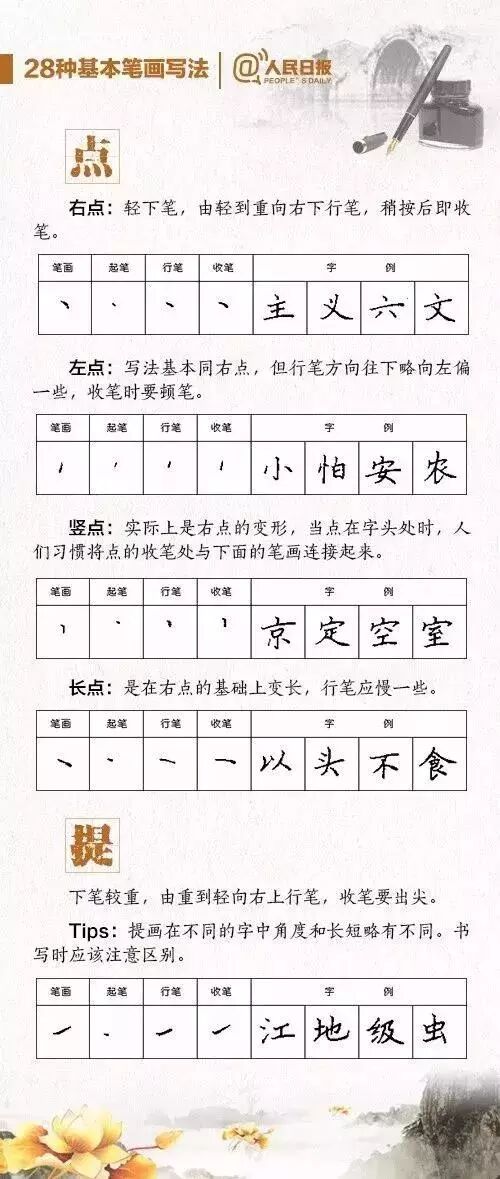 28种基本笔画写法
@人民日报
PEOPLE'S DAILY
点
右点：轻下笔，由轻到重向右下行笔，稍按后即收
笔。
笔画 起笔 行笔 收笔 字 例
主 义 六 文
左点：写法基本同右点，但行笔方向往下略向左偏
一些，收笔时要顿笔。
笔画 起笔 行笔 收笔 字 例
小 怕 安 农
竖点：实际上是右点的变形，当点在字头处时，人
们习惯将点的收笔处与下面的笔画连接起来。
笔画 起笔 行笔 收笔 字 例
京 定 空 室
长点：是在右点的基础上变长，行笔应慢一些。
笔画 起笔 行笔 收笔 字 例
以 头 不 食
提
下笔较重，由重到轻向右上行笔，收笔要出尖。
Tips：提画在不同的字中角度和长短略有不同。书
写时应该注意区别。
笔画 起笔 行笔 收笔 字 例
江 地 级 虫